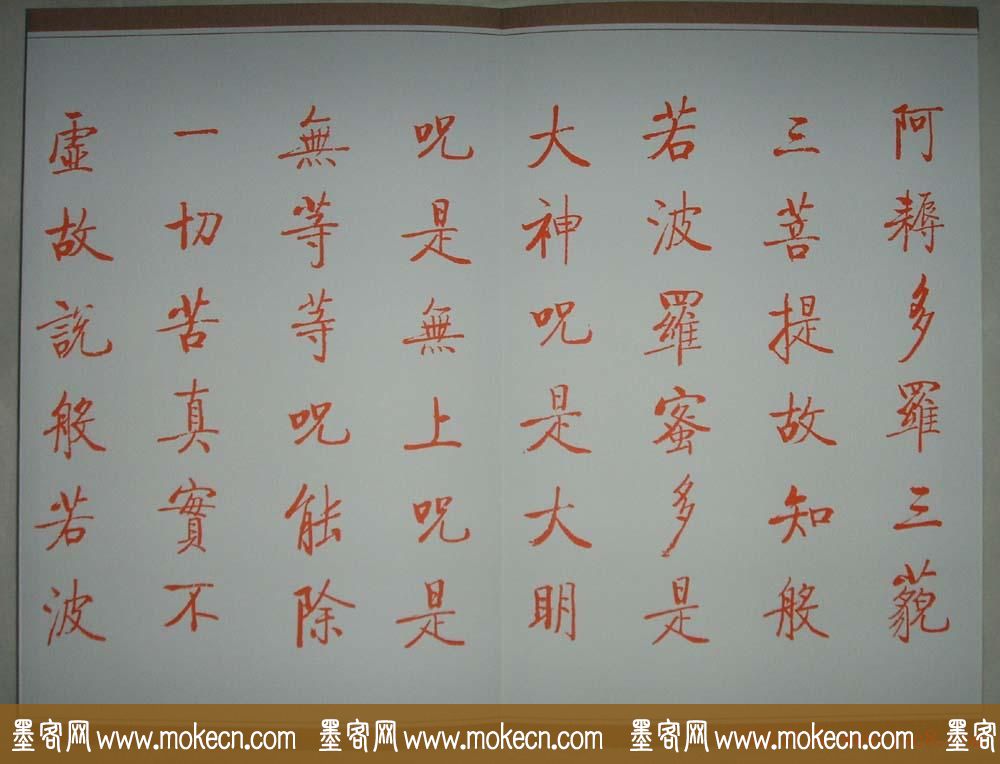 阿耨多羅三藐
三菩提故知般
若波羅蜜多是
大神呪是大明
呪是無上呪是
無等等呪能除
一切苦真實不
虛故說般若波
墨客网 www.mokecn.com 墨客网 www.mokecn.com 墨客网 www.mokecn.com 墨客